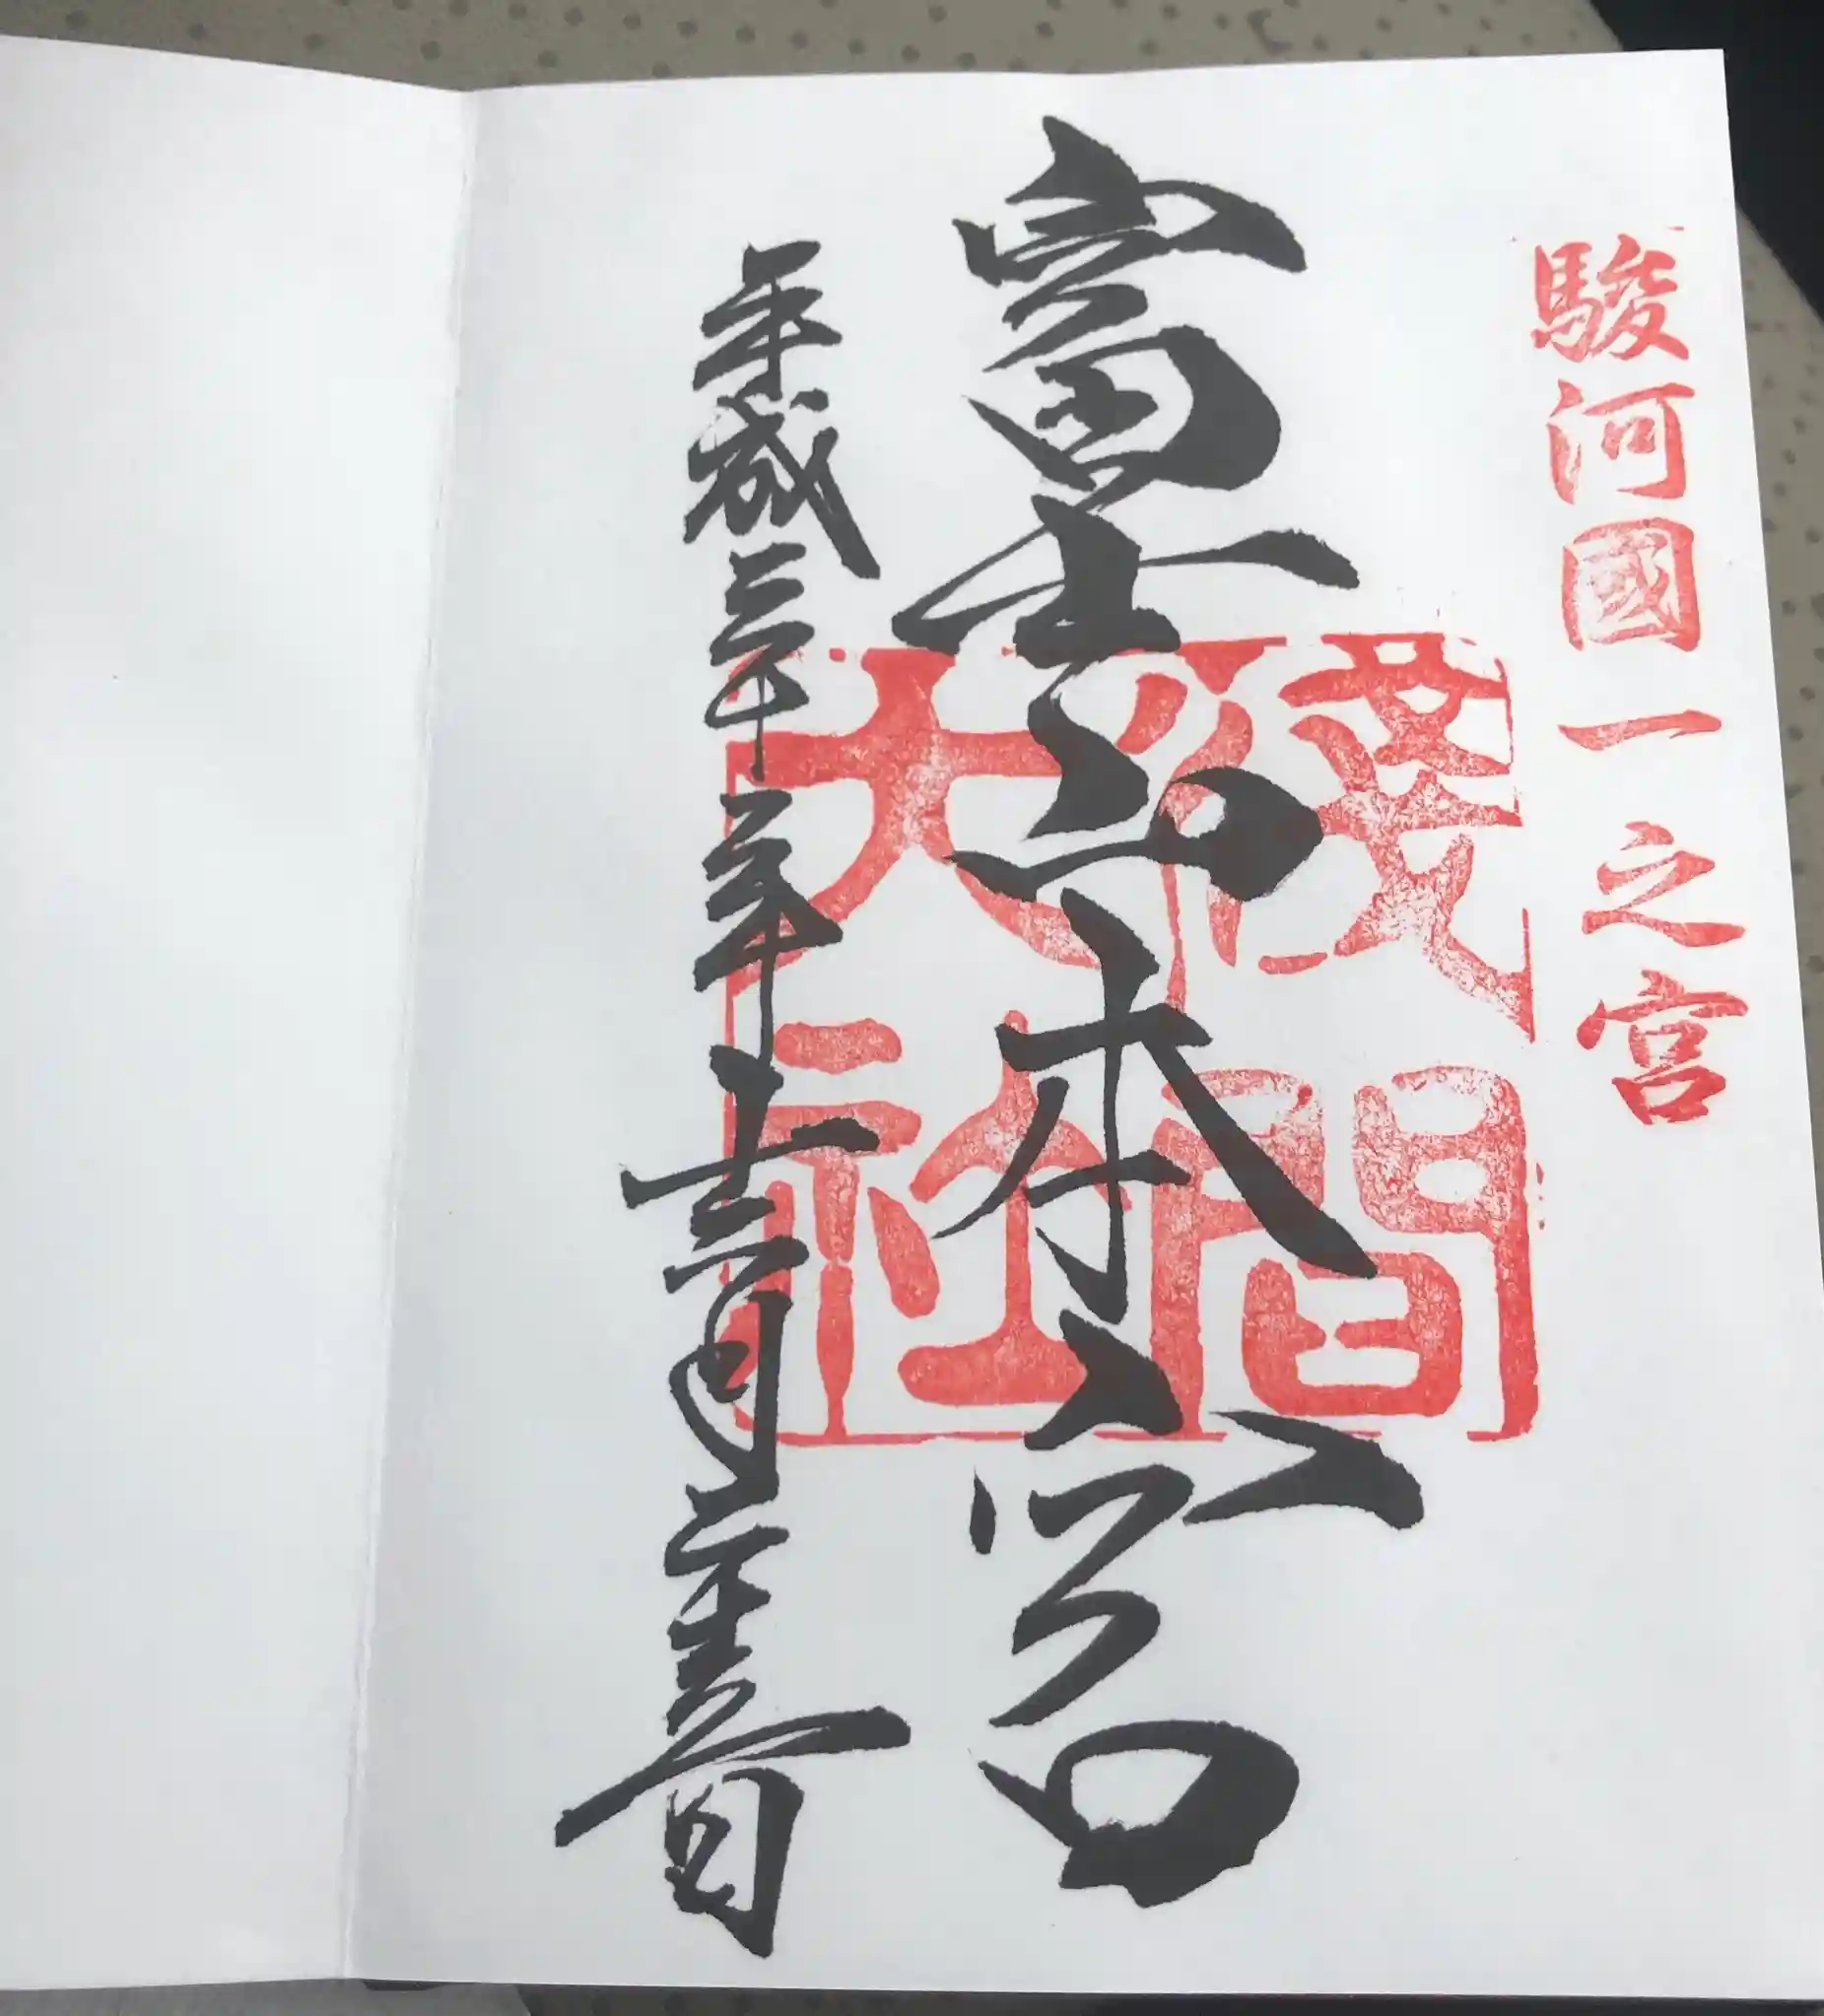 駿河國一之宮
富士山本宮
淺間
大社
平成三十年十二月二十五日